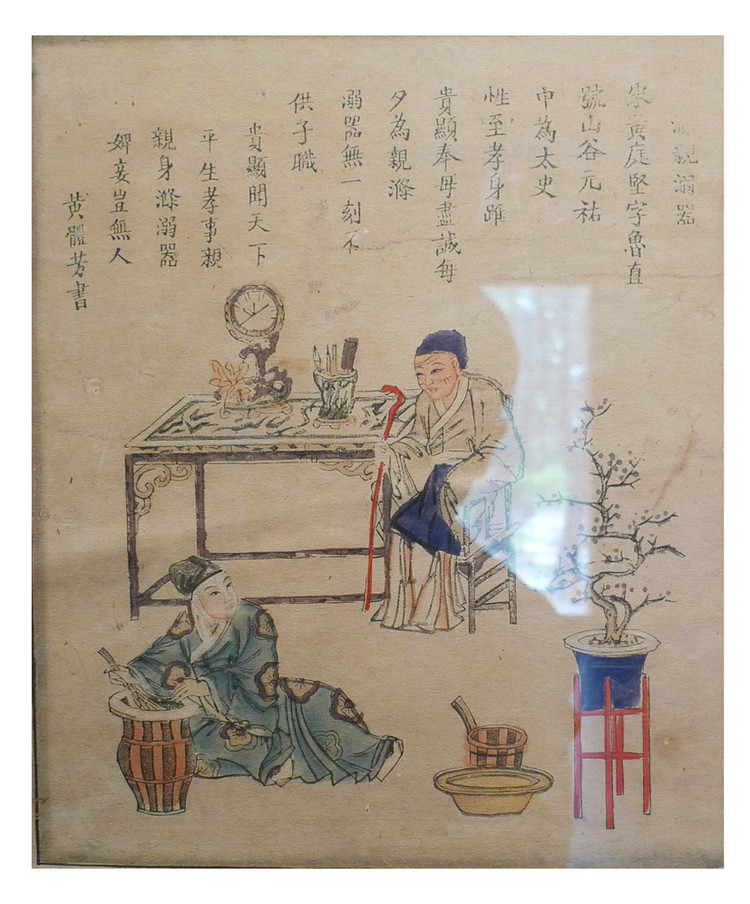 親溺器
宋黃庭堅字魯直
號山谷元祐
中為太史
性至孝身雖
貴顯奉母盡誠每
夕為親滌
溺器無一刻不
供子職
貴顯聞天下
平生孝事親
親身滌溺器
婢妾豈無人
黃體芳書